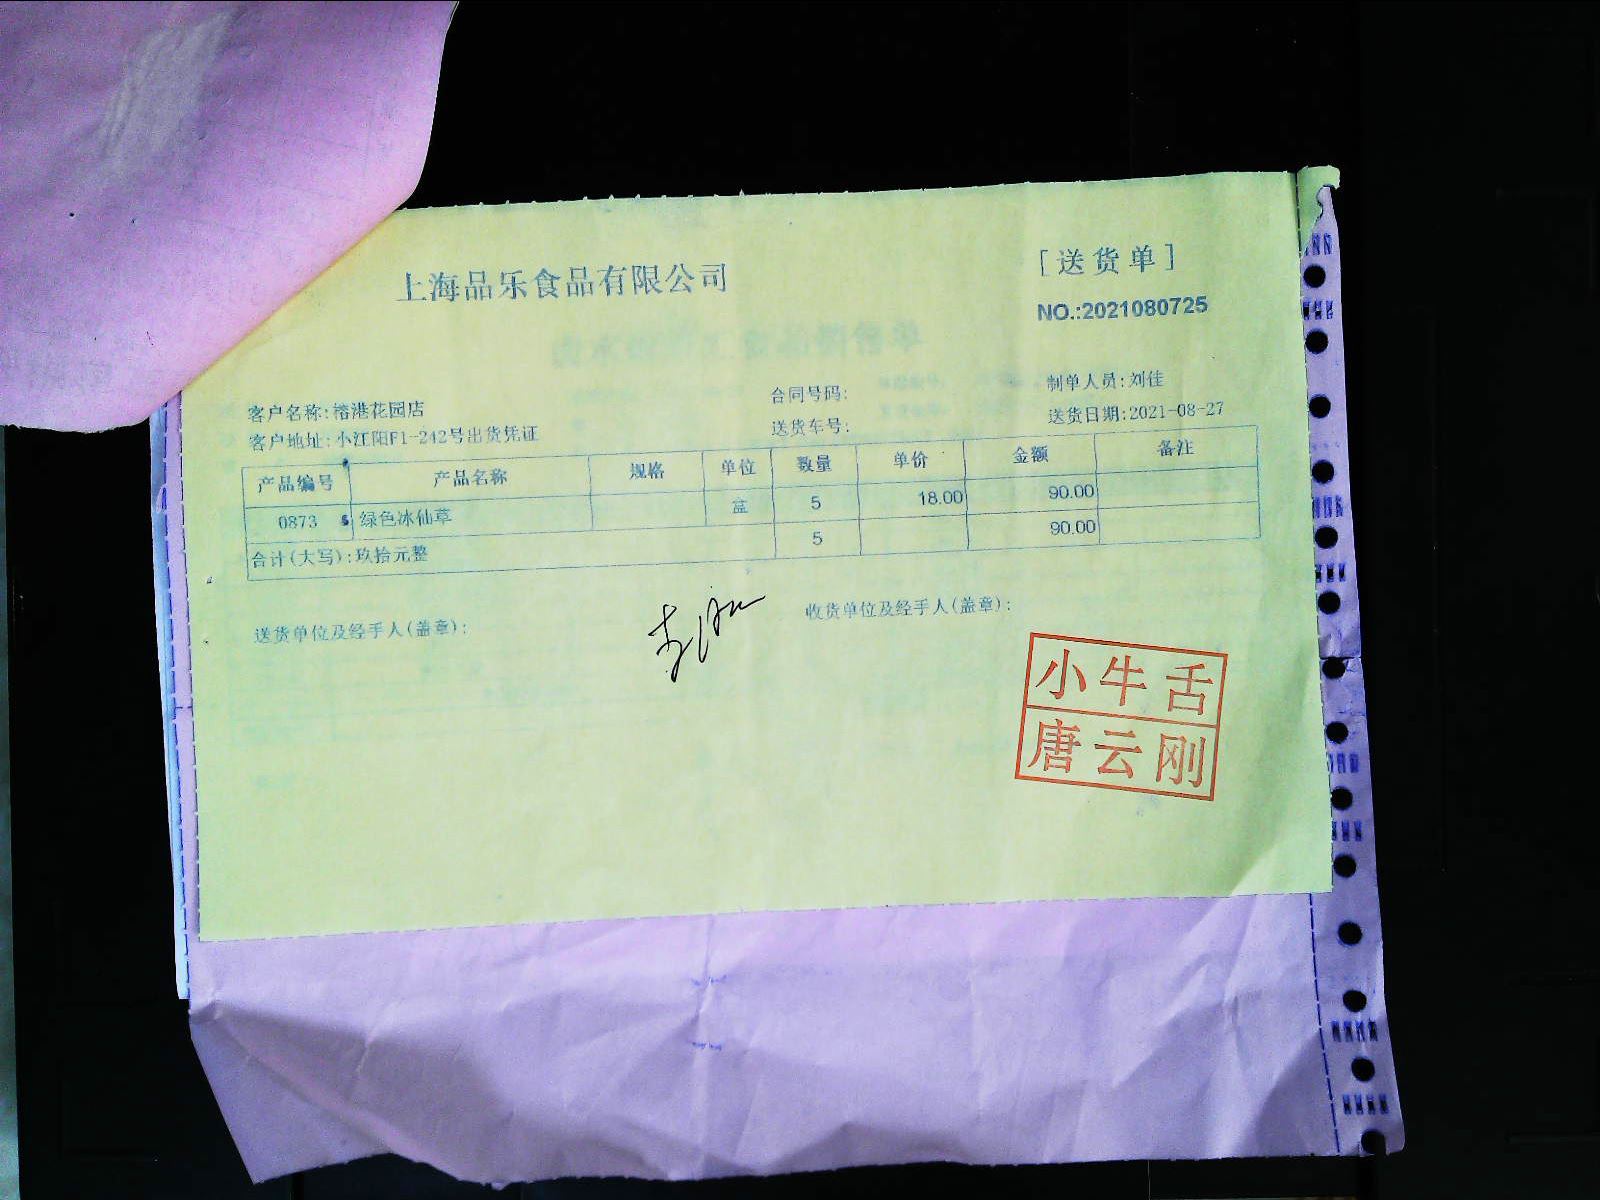 上海品乐食品有限公司
[送货单]
NO.:2021080725
客户名称:榕港花园店
合同号码:
制单人员:刘佳
客户地址:小江阳F1-242号出货凭证
送货车号:
送货日期:2021-08-27
产品编号 产品名称 规格 单位 数量 单价 金额 备注
0873 绿色冰仙草 盒 5 18.00 90.00
合计(大写):玖拾元整 5 90.00
送货单位及经手人(盖章):
收货单位及经手人(盖章):
小牛舌
唐云刚